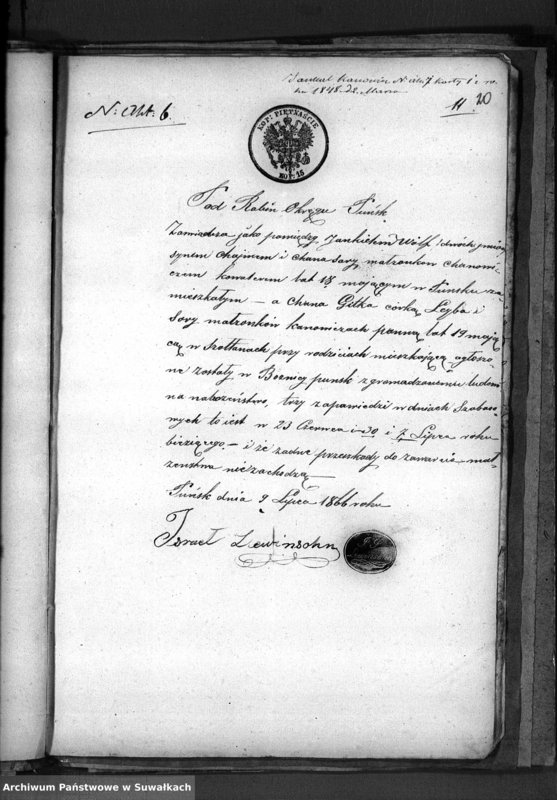 Jankiel Kanowicz N. aktu 7 karty 1 z ro-
ku 1848 22 Marca
N: Akt. 6.
11. 20
KOP: PIĘTNAŚCIE
KOP. 15
Pod Rabin Okręgu Puńsk
Zawiadasa jako pomiędzy Jankielem Wolf /dwóch imion/
synem Chajmem i Chana Sory małżonków Chanowi-
czem kawalerem lat 18 mającym w Puńsku za-
mieszkałym – a Chana Gitka córką Leyba i
Sory małżonków Kanowiczach panną lat 19 mają
cą w Szołtanach przy rodzicach mieszkającą ogłoszo-
ne zostały w Bożnicy puńsk zgromadzonemu ludowi
na nabożeństwo, trzy zapowiedzi w dniach Szabaso-
wych to iest w 23 Czerwca i 30 i 7 Lipca roku
bieżącego – i że żadne przeszkody do zawarcia mał-
żeństwa nie zachodzą –
Puńsk dnia 9 Lipca 1866 roku
Izrael Lewinsohn
Archiwum Państwowe w Suwałkach